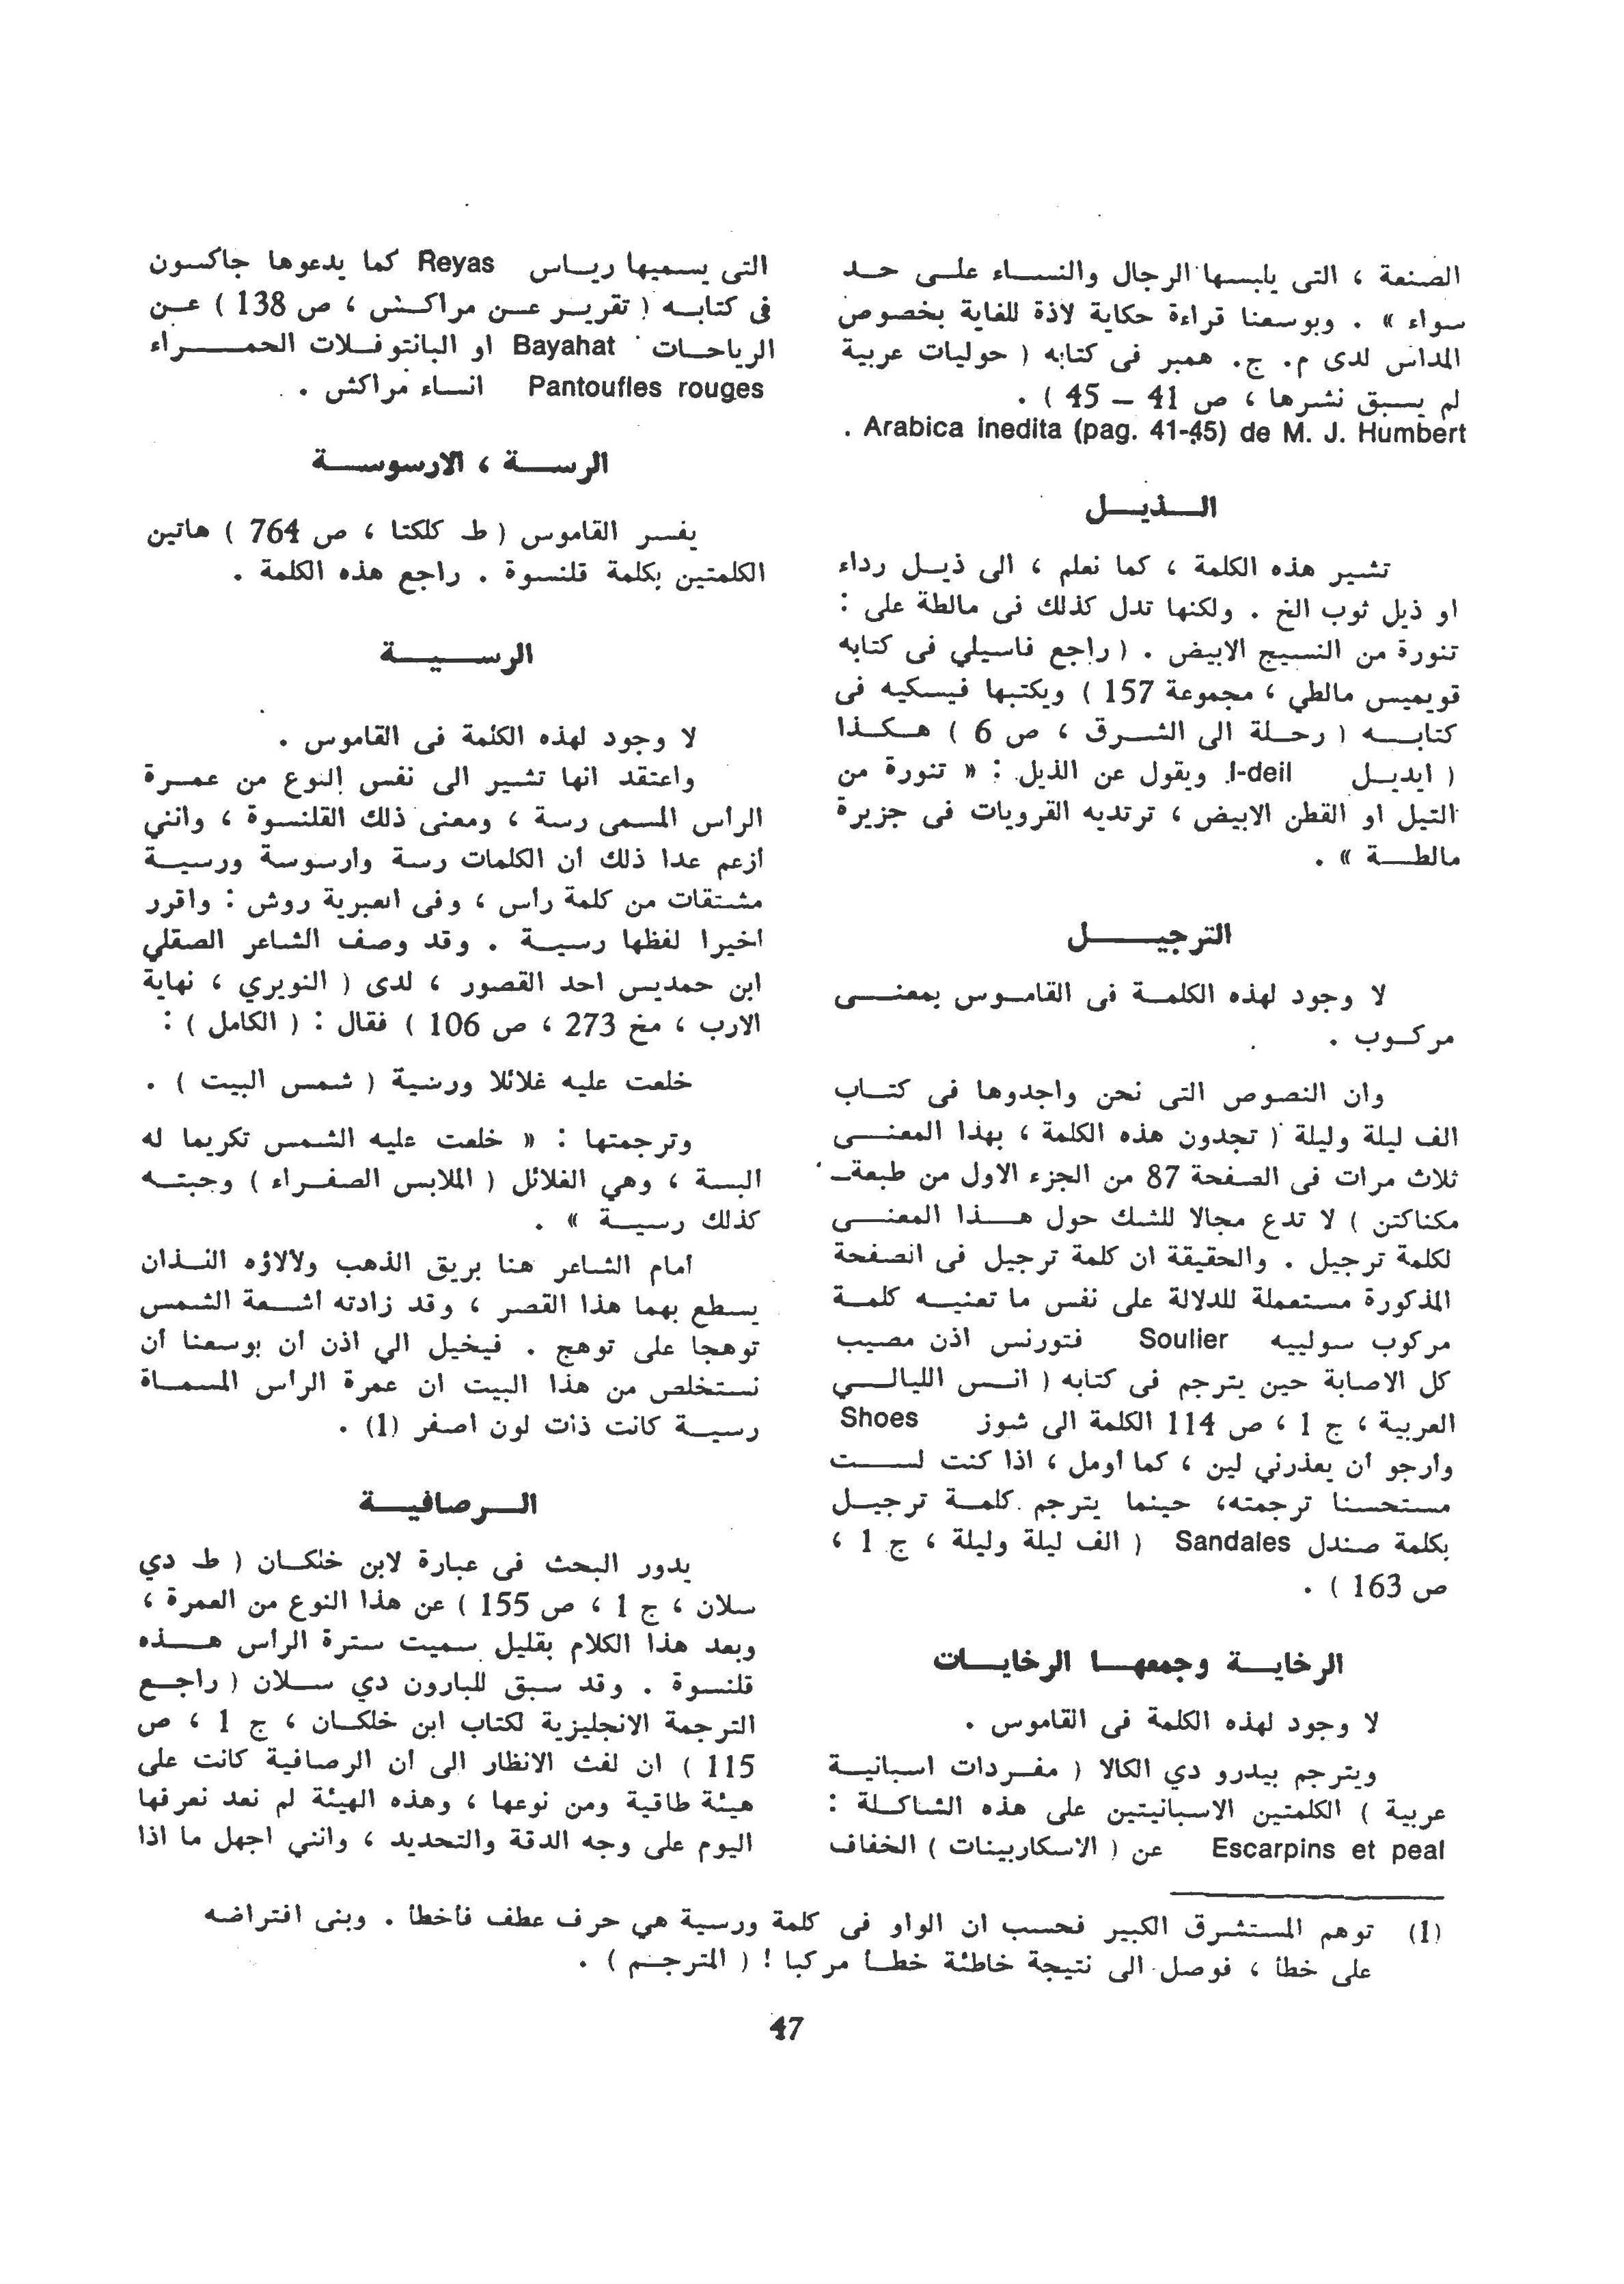 الصنعة ، التى يلبسها الرجال والنساء على حد
سواء » . وبوسعنا قراءة حكاية لاذة للغاية بخصوص
المداس لدى م. ج. همبر فى كتابه ( حوليات عربية
لم يسبق نشرها ، ص 41 – 45 ) .
. Arabica inedita (pag. 41-45) de M. J. Humbert
الذيل
تشير هذه الكلمة ، كما نعلم ، الى ذيل رداء
او ذيل ثوب الخ . ولكنها تدل كذلك فى مالطة على :
تنورة من النسيج الابيض . ( راجع فاسيلي فى كتابه
قويميس مالطي ، مجموعة 157 ) ويكتبها فيسكيه فى
كتابه ( رحلة الى الشرق ، ص 6 ) هكذا
( ايديل I-deil. ويقول عن الذيل : « تنورة من
التيل او القطن الابيض ، ترتديه القرويات فى جزيرة
مالطة » .
الترجيل
لا وجود لهذه الكلمة فى القاموس بمعنى
مركوب .
وان النصوص التى نحن واجدوها فى كتاب
الف ليلة وليلة ( تجدون هذه الكلمة ، بهذا المعنى
ثلاث مرات فى الصفحة 87 من الجزء الاول من طبعة
مكناكتن ) لا تدع مجالا للشك حول هذا المعنى
لكلمة ترجيل . والحقيقة ان كلمة ترجيل فى الصفحة
المذكورة مستعملة للدلالة على نفس ما تعنيه كلمة
مركوب سولييه Soulier فتورنس اذن مصيب
كل الاصابة حين يترجم فى كتابه ( انس الليالي
العربية ، ج 1 ، ص 114 الكلمة الى شوز Shoes
وأرجو أن يعذرني لين ، كما أومل ، اذا كنت لست
مستحسنا ترجمته، حينما يترجم كلمة ترجيل
بكلمة صندل Sandales ( الف ليلة وليلة ، ج 1 ،
ص 163 ) .
الرخاية وجمعها الرخايات
لا وجود لهذه الكلمة فى القاموس .
ويترجم بيدرو دي الكالا ( مفردات اسبانية
عربية ) الكلمتين الاسبانيتين على هذه الشاكلة :
Escarpins et peal عن ( الاسكاربينات ) الخفاف
التى يسميها رياس Reyas كما يدعوها جاكسون
فى كتابه ( تقرير عن مراكش ، ص 138 ) عن
الرياحات Bayahat او البانتوفلات الحمراء
Pantoufles rouges انساء مراكش .
الرسة ، الارسوسة
يفسر القاموس ( ط كلكتا ، ص 764 ) هاتين
الكلمتين بكلمة قلنسوة . راجع هذه الكلمة .
الرسية
لا وجود لهذه الكلمة فى القاموس .
واعتقد انها تشير الى نفس النوع من عمرة
الرأس المسمى رسة ، ومعنى ذلك القلنسوة ، وانني
أزعم عدا ذلك أن الكلمات رسة وأرسوسة ورسية
مشتقات من كلمة رأس ، وفى العبرية روش : واقرر
اخيرا لفظها رسية . وقد وصف الشاعر الصقلي
ابن حمديس احد القصور ، لدى ( النويري ، نهاية
الارب ، مخ 273 ، ص 106 ) فقال : ( الكامل ) :
خلعت عليه غلائلا ورسية ( شمس البيت ) .
وترجمتها : « خلعت عليه الشمس تكريما له
البسة ، وهي الغلائل ( الملابس الصفراء ) وجبته
كذلك رسية » .
أمام الشاعر هنا بريق الذهب ولألاؤه اللذان
يسطع بهما هذا القصر ، وقد زادته اشعة الشمس
توهجا على توهج . فيخيل الي اذن أن بوسعنا أن
نستخلص من هذا البيت ان عمرة الرأس المسماة
رسية كانت ذات لون اصفر (1) .
الرصافية
يدور البحث فى عبارة لابن خلكان ( ط دي
سلان ، ج 1 ، ص 155 ) عن هذا النوع من العمرة ،
وبعد هذا الكلام بقليل سميت سترة الرأس هذه
قلنسوة . وقد سبق للبارون دي سلان ( راجع
الترجمة الانجليزية لكتاب ابن خلكان ، ج 1 ، ص
115 ) ان لفت الانظار الى أن الرصافية كانت على
هيئة طاقية ومن نوعها ، وهذه الهيئة لم نعد نعرفها
اليوم على وجه الدقة والتحديد ، وانني اجهل ما اذا
(1) توهم المستشرق الكبير فحسب ان الواو فى كلمة ورسية هي حرف عطف فأخطأ . وبنى افتراضه
على خطأ ، فوصل الى نتيجة خاطئة خطأ مركبا ! ( المترجم ) .
47